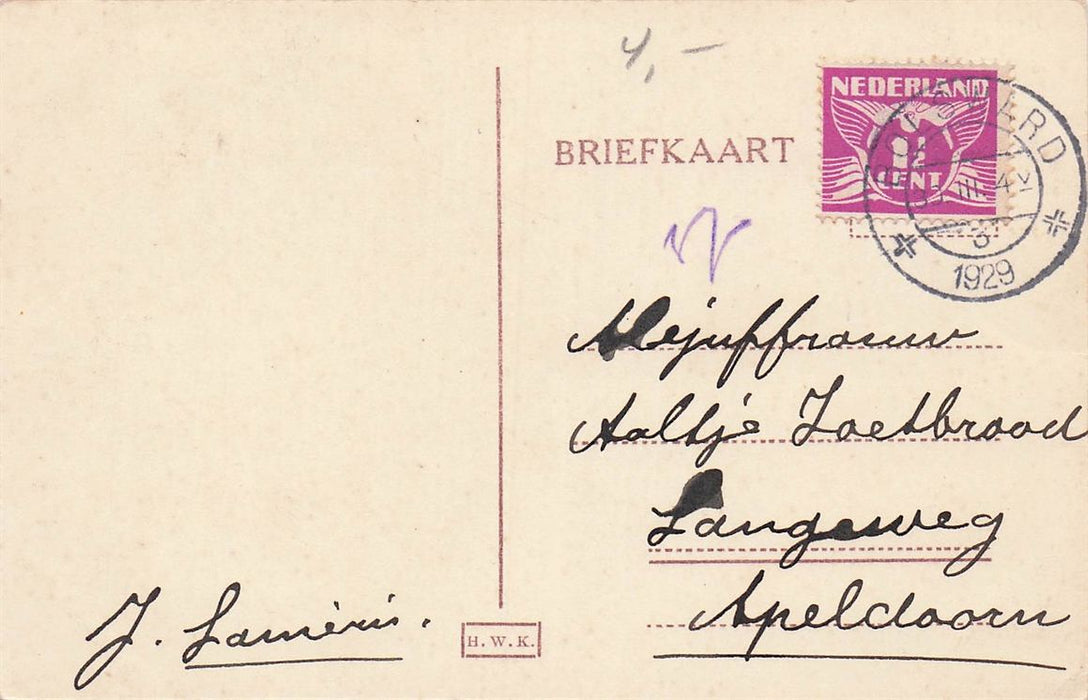 4,-
BRIEFKAART
NEDERLAND
CENT
BOLSWARD
III. 4
3
1929
Mejuffrouw
Aaltje Zoetbrood
Langeweg
Apeldoorn
J. Lamèris.
H.W.K.